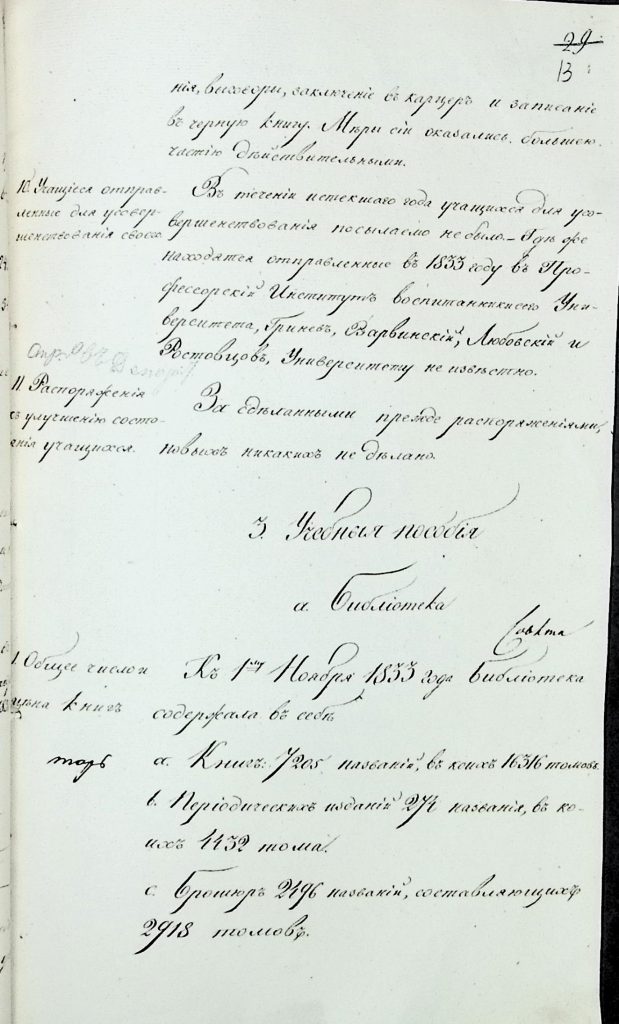 29
13
нія, выговоры, заключеніе въ карцеръ и записаніе
въ черную книгу. Мѣры сіи оказались большею
частію дѣйствительными.
10. Учащіеся отправ-
ленные для усовер-
шенствованія своего
Въ теченіи истекшаго года учащихся для усо-
вершенствованія посылаемо не было. – Гдѣ же
находятся отправленные въ 1833 году въ Про-
фессорскій Институтъ воспитанники его Уни-
верситета, Гриневъ, Варвинскій, Любовскій и
Ростовцовъ, Университету не извѣстно.
11. Распоряженія
къ улучшенію состо-
енія учащихся.
За сдѣланными прежде распоряженіями,
новыхъ никакихъ не дѣлано.
3. Учебныя пособія
а. Библіотека
Совѣта
1. Общее число и
цѣна книгъ
Къ 1му Ноября 1833 года Библіотека
содержала въ себѣ
a. Книгъ: 7205 названій, въ коихъ 16316 томовъ.
b. Періодическихъ изданій 274 названія, въ ко-
ихъ 4432 тома.
c. Брошюръ 2496 названій, составляющихъ
2918 томовъ.